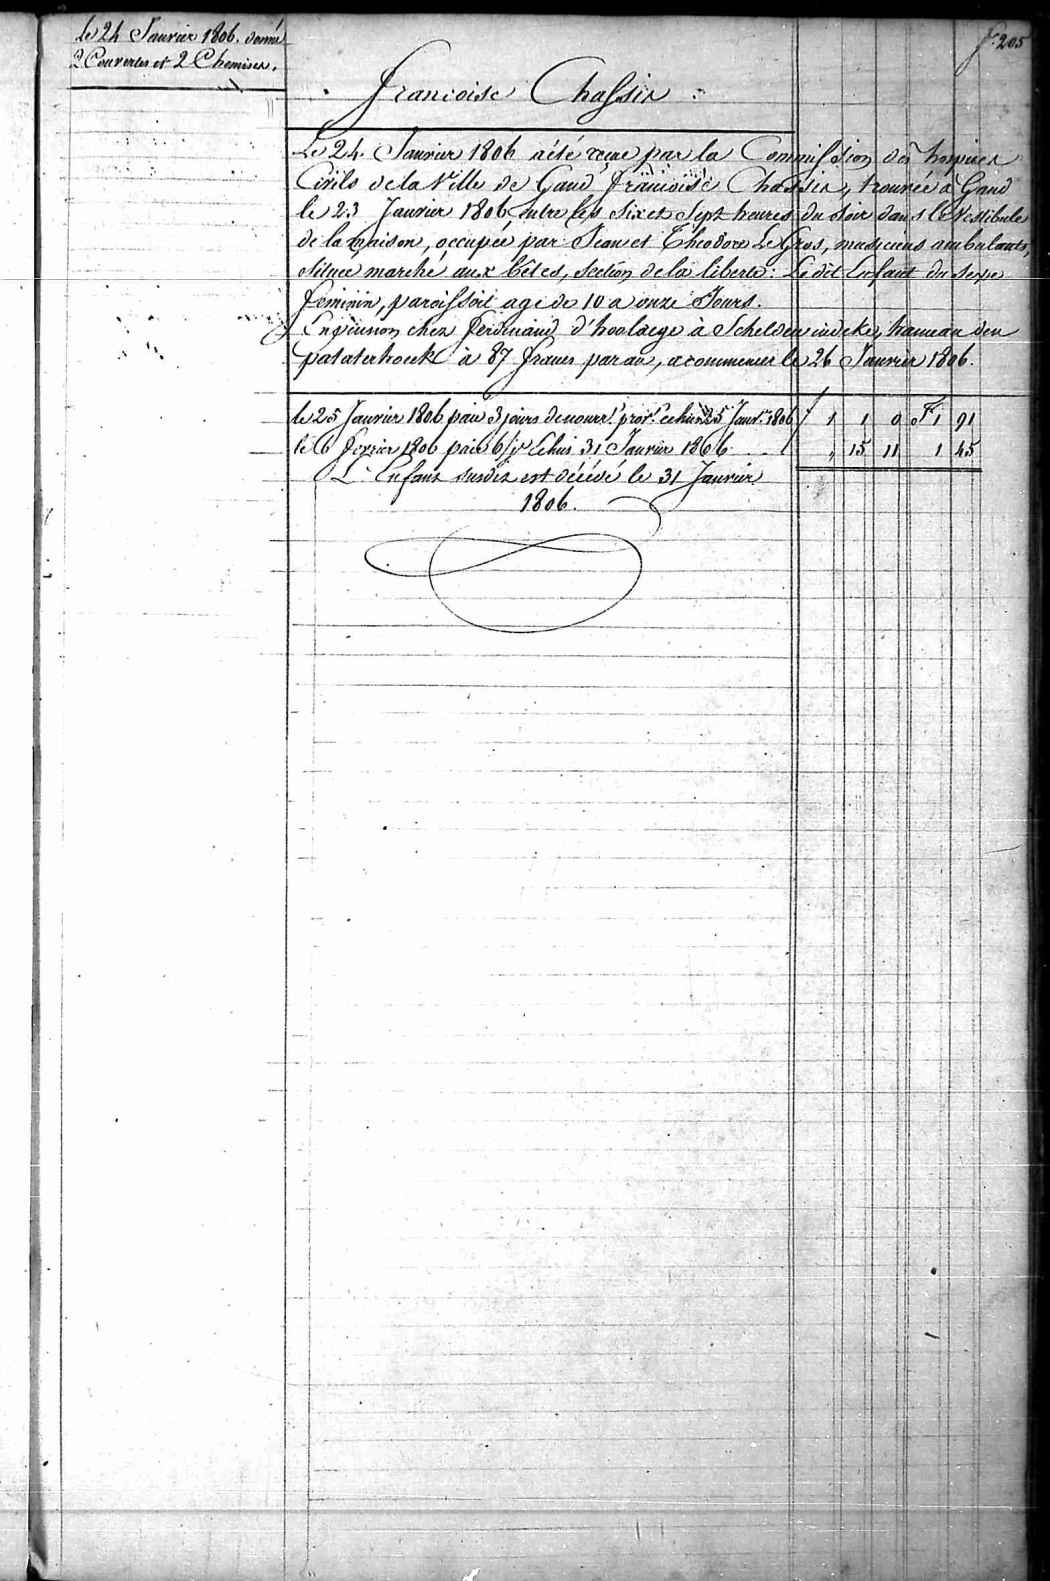 f.° 205
le 24 Janvier 1806. donné
2 Couvertes et 2 Chemises.
Francoise Chassin
Le 24. Janvier 1806 a été reçue par la Commission des hospices
Civils de la Ville de Gand Francoise Chassin, trouvée à Gand
le 23 Janvier 1806 entre les Six et Sept heures du Soir dans le Vestibule
de la maison, occupée par Jean et Theodore Le Gros, musiciens ambulants,
située marché aux bêtes, section de la liberte: Le dit Enfant du sexe
feminin, paroissoit agé de 10 a onze Jours.
En pension chez Ferdinand d'hoolaege à Scheldewindeke, hameau den
pataterhoek à 87 francs par an, a commencer le 26 Janvier 1806.
le 25 Janvier 1806 paié 3 jours de nourr. prov. echus 25 Janv. 1806 1 1 0 F 1 91
le 6 fevrier 1806 paié 6 Echus 31 Janvier 1806 " 15 11 1 45
L'Enfant susdit est décédé le 31 Janvier
1806.